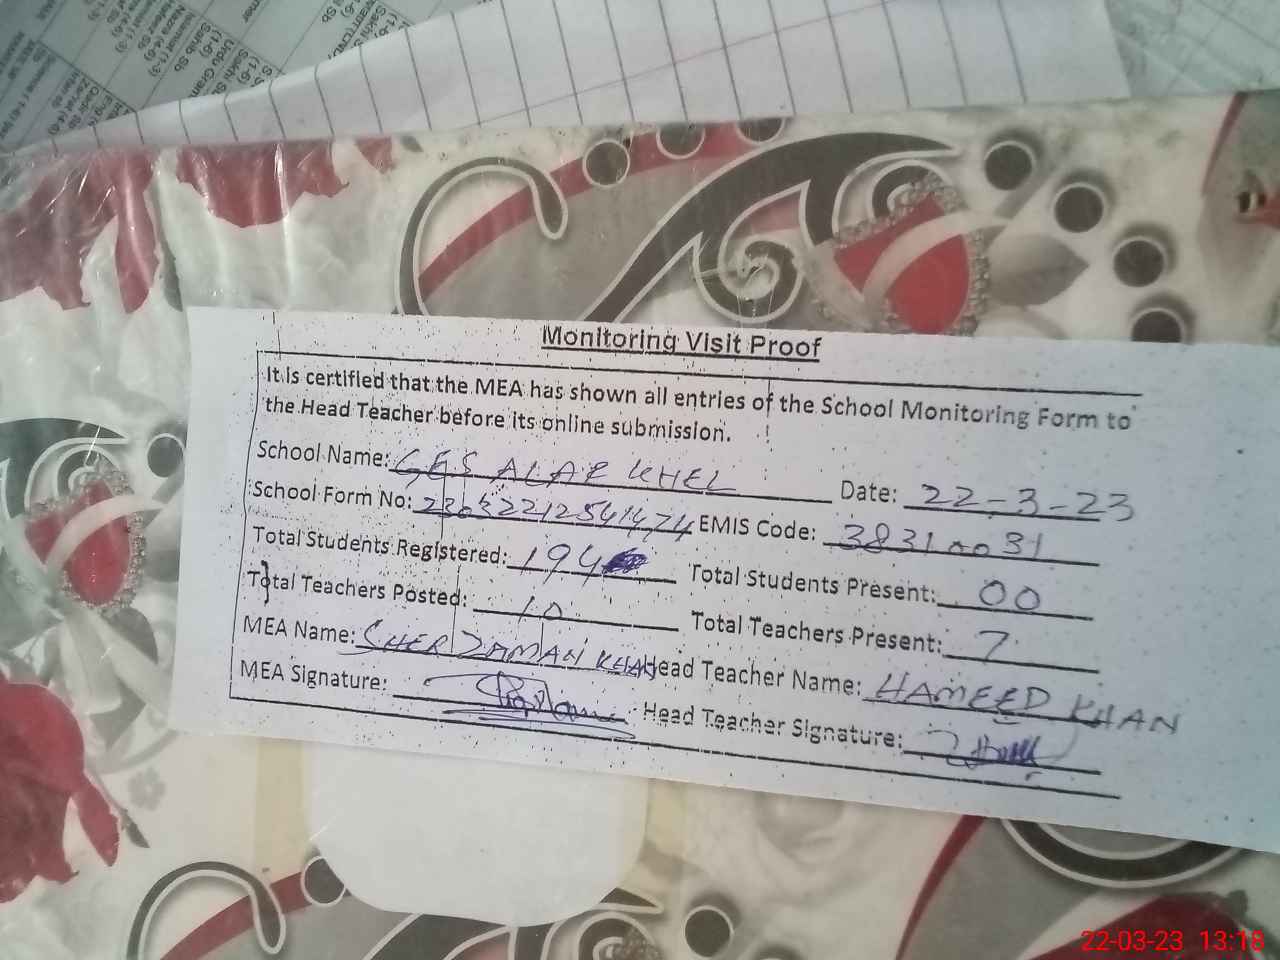 Monitoring Visit Proof
It is certified that the MEA has shown all entries of the School Monitoring Form to
the Head Teacher before its online submission.
School Name: GES ALAR KHEL Date: 22-3-23
School Form No: 23632212541474 EMIS Code: 38310031
Total Students Registered: 194 Total Students Present: 00
Total Teachers Posted: 10 Total Teachers Present: 7
MEA Name: SHER ZAMAN KHAN Head Teacher Name: HAMEED KHAN
MEA Signature: Head Teacher Signature:
22-03-23 13:18